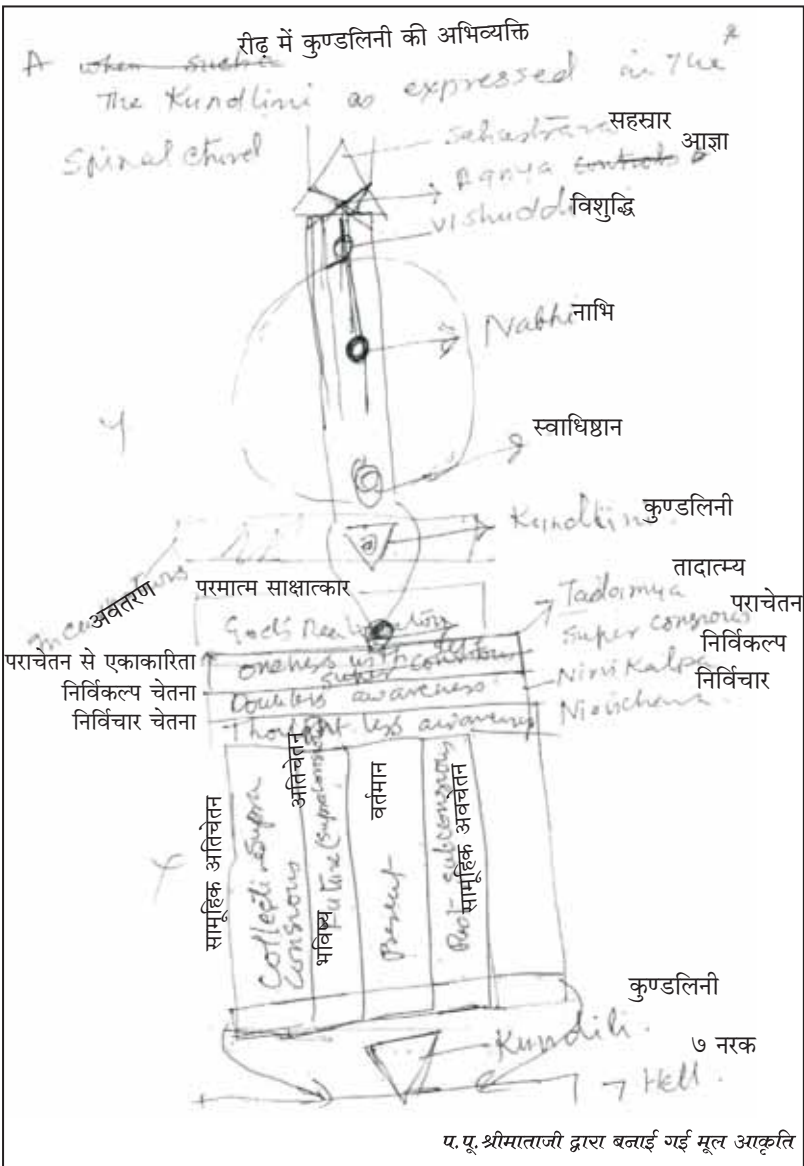 रीढ़ में कुण्डलिनी की अभिव्यक्ति
A when such
The Kundlini as expressed in The
Spinal Chord
Sehastrara सहस्रार
Agnya controls आज्ञा
Vishuddi विशुद्धि
Nabhi नाभि
स्वाधिष्ठान
Kundlini कुण्डलिनी
Incarnations अवतरण
परमात्म साक्षात्कार
तादात्म्य
Tadatmya
पराचेतन
God's Realisation
Super consious
निर्विकल्प
पराचेतन से एकाकारिता
oneness with super conscious
Nirvikalpa
निर्विचार
निर्विकल्प चेतना
Doubtless awareness
निर्विचार चेतना
Thought-less awareness
Nirvichara
सामूहिक अतिचेतन
Collective Supra Consious
अतिचेतन
Future (Supraconsious)
भविष्य
वर्तमान
Present
Past subconsious
सामूहिक अवचेतन
कुण्डलिनी
Kundili.
७ नरक
7 Hell.
प.पू.श्रीमाताजी द्वारा बनाई गई मूल आकृति